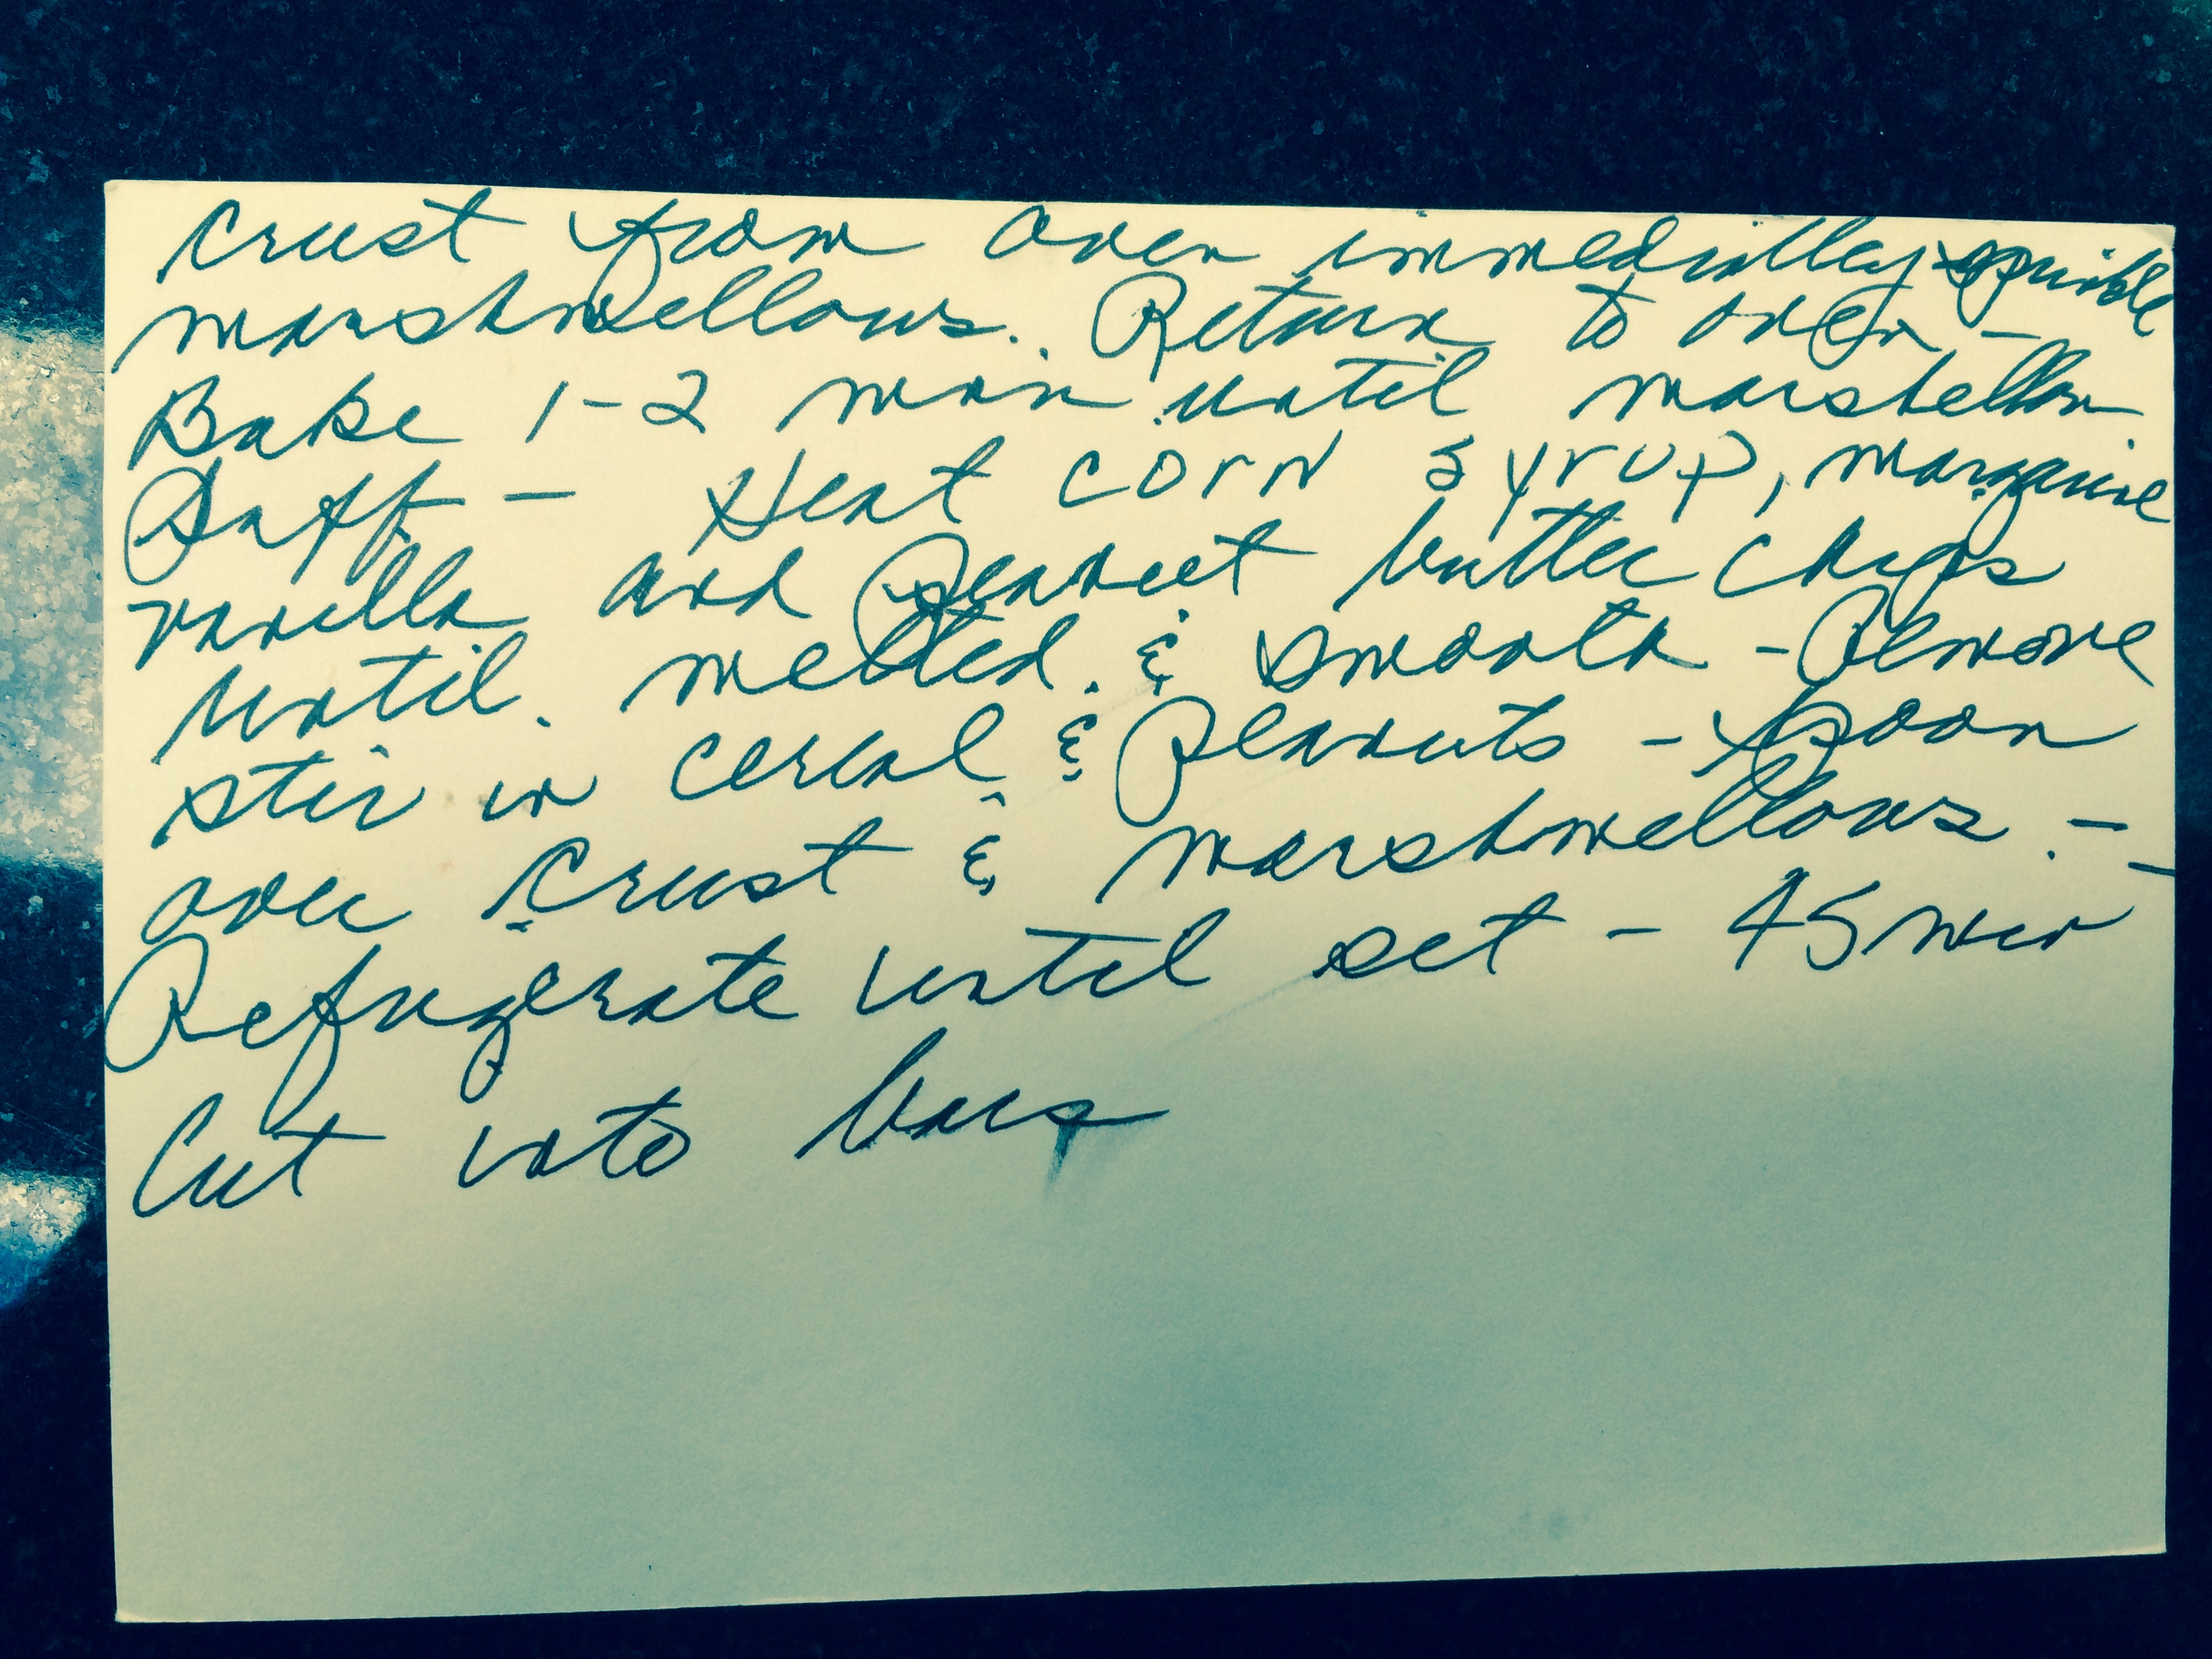 crust from oven immediatley sprinkle
marshmellows. Return to oven -
Bake 1-2 min until marshellow
Puff - Heat corn syrup, margarine
vanilla and peanut butter chips
until melted & smooth - Remove
stir in cereal & Peanuts - spoon
over crust & marshmellows. -
Refrigerate until set - 45 min
Cut into bars